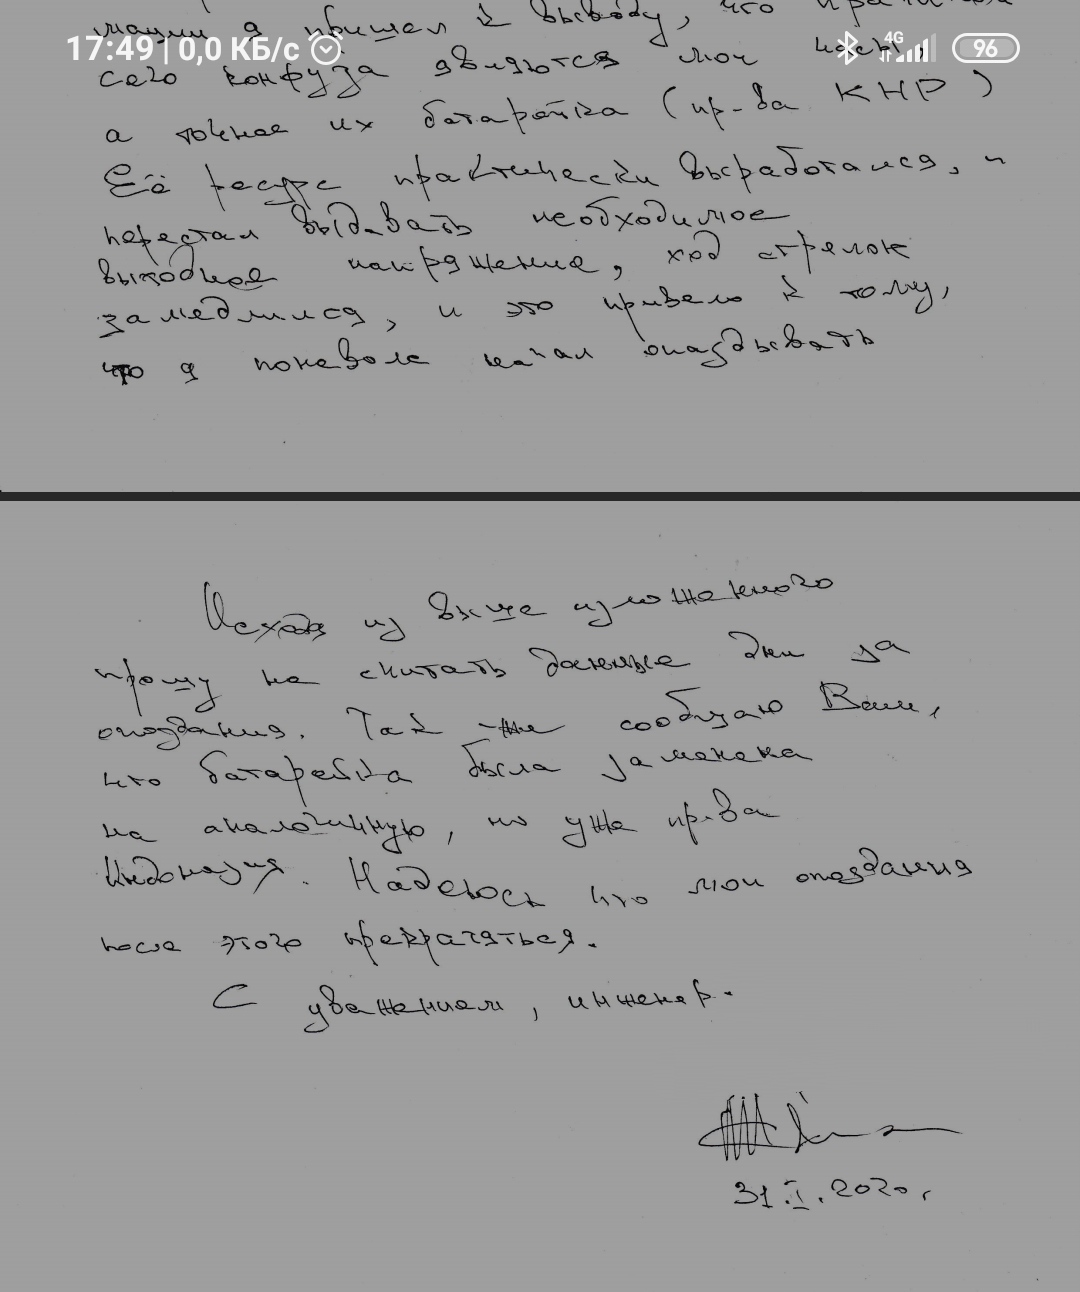 я пришел к выводу, что
17:49 | 0,0 КБ/с 4G 96
сего конфуза являются мои часы,
а точнее их батарейка (пр-ва КНР)
Её ресурс практически выработался, и
перестал выдавать необходимое
выходное напряжение, ход стрелок
замедлился, и это привело к тому,
что я поневоле начал опаздывать
Исходя из выше изложенного
прошу не считать данные дни за
опоздания. Так же сообщаю Вам,
что батарейка была заменена
на аналогичную, но уже пр-ва
Индонезия. Надеюсь что мои опоздания
после этого прекратяться.
С уважением, инженер.
31.I.2020г.